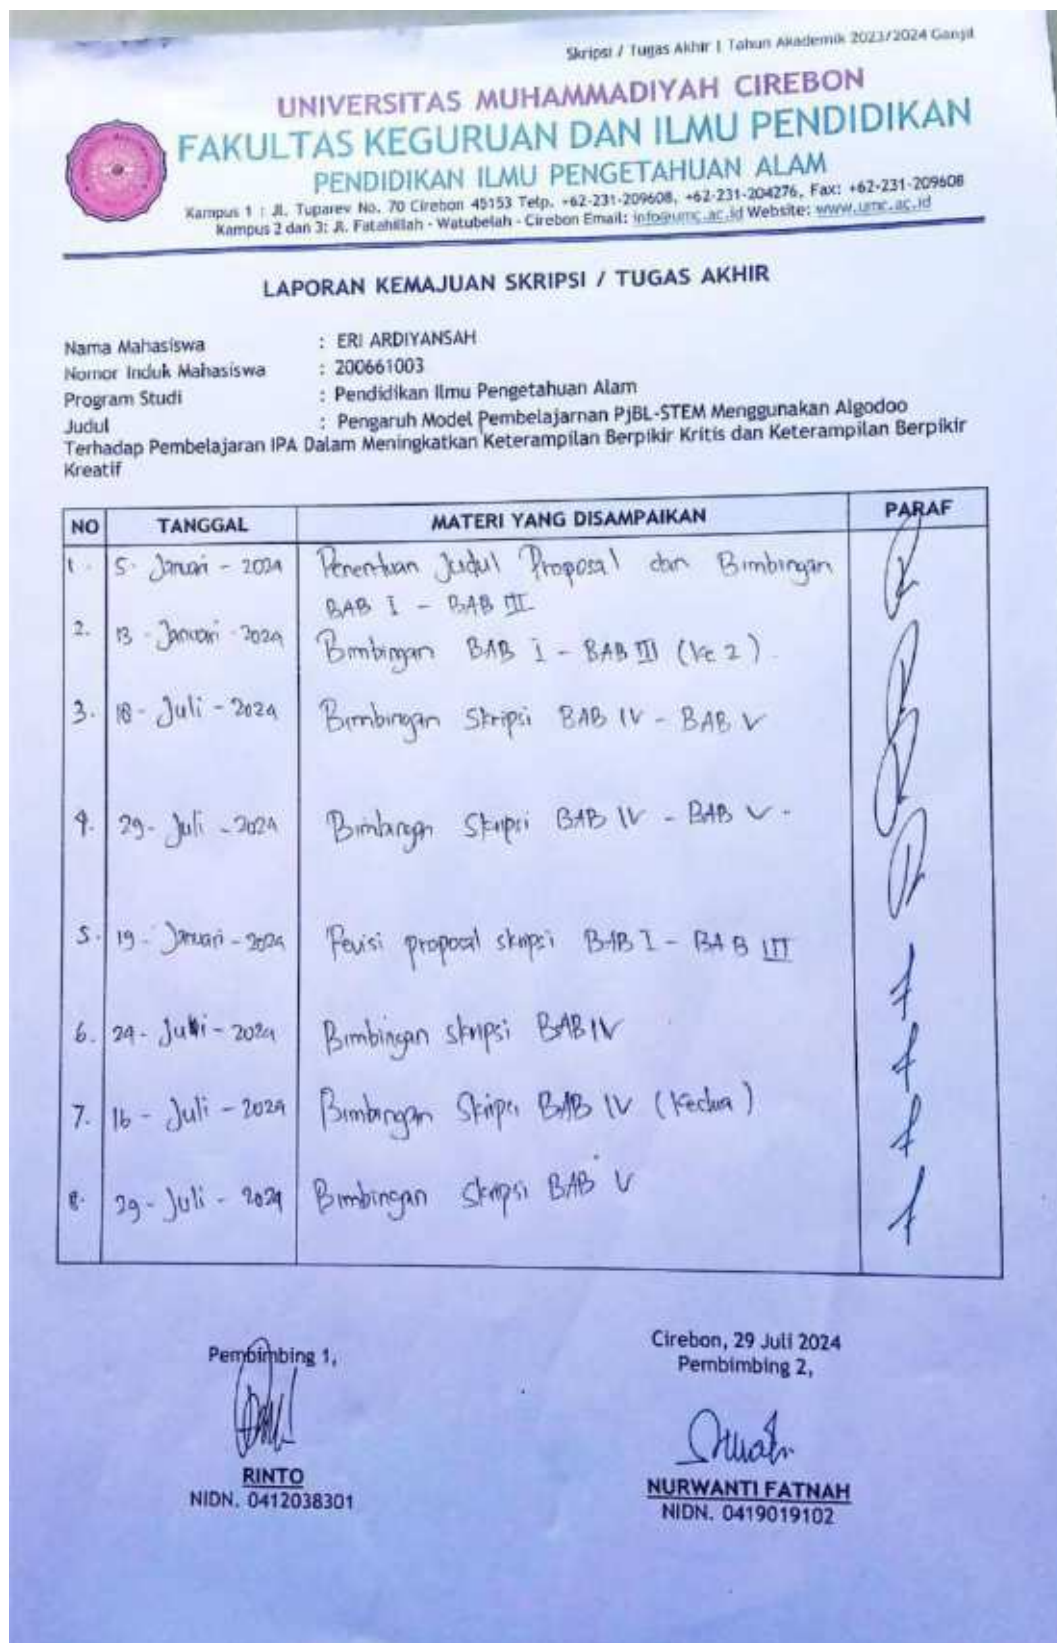 Skripsi / Tugas Akhir | Tahun Akademik 2023/2024 Ganjil
UNIVERSITAS MUHAMMADIYAH CIREBON
FAKULTAS KEGURUAN DAN ILMU PENDIDIKAN
PENDIDIKAN ILMU PENGETAHUAN ALAM
Kampus 1 : Jl. Tuparev No. 70 Cirebon 45153 Telp. +62-231-209608, +62-231-204276, Fax: +62-231-209608
Kampus 2 dan 3: Jl. Fatahillah - Watubelah - Cirebon Email: info@umc.ac.id Website: www.umc.ac.id
LAPORAN KEMAJUAN SKRIPSI / TUGAS AKHIR
Nama Mahasiswa : ERI ARDIYANSAH
Nomor Induk Mahasiswa : 200661003
Program Studi : Pendidikan Ilmu Pengetahuan Alam
Judul : Pengaruh Model Pembelajarnan PjBL-STEM Menggunakan Algodoo
Terhadap Pembelajaran IPA Dalam Meningkatkan Keterampilan Berpikir Kritis dan Keterampilan Berpikir
Kreatif
NO TANGGAL MATERI YANG DISAMPAIKAN PARAF
1. 5 - Januari - 2024 Penentuan Judul Proposal dan Bimbingan
BAB I - BAB III
2. 13 - Januari - 2024 Bimbingan BAB I - BAB III (Ke 2).
3. 18 - Juli - 2024 Bimbingan Skripsi BAB IV - BAB V
4. 29 - Juli - 2024 Bimbingan Skripsi BAB IV - BAB V -
5. 19 - Januari - 2024 Revisi proposal skripsi BAB I - BAB III
6. 24 - - 2024 Bimbingan skripsi BAB IV
7. 16 - Juli - 2024 Bimbingan Skripsi BAB IV (Kedua)
8. 29 - Juli - 2024 Bimbingan Skripsi BAB V
Cirebon, 29 Juli 2024
Pembimbing 1, Pembimbing 2,
RINTO NURWANTI FATNAH
NIDN. 0412038301 NIDN. 0419019102